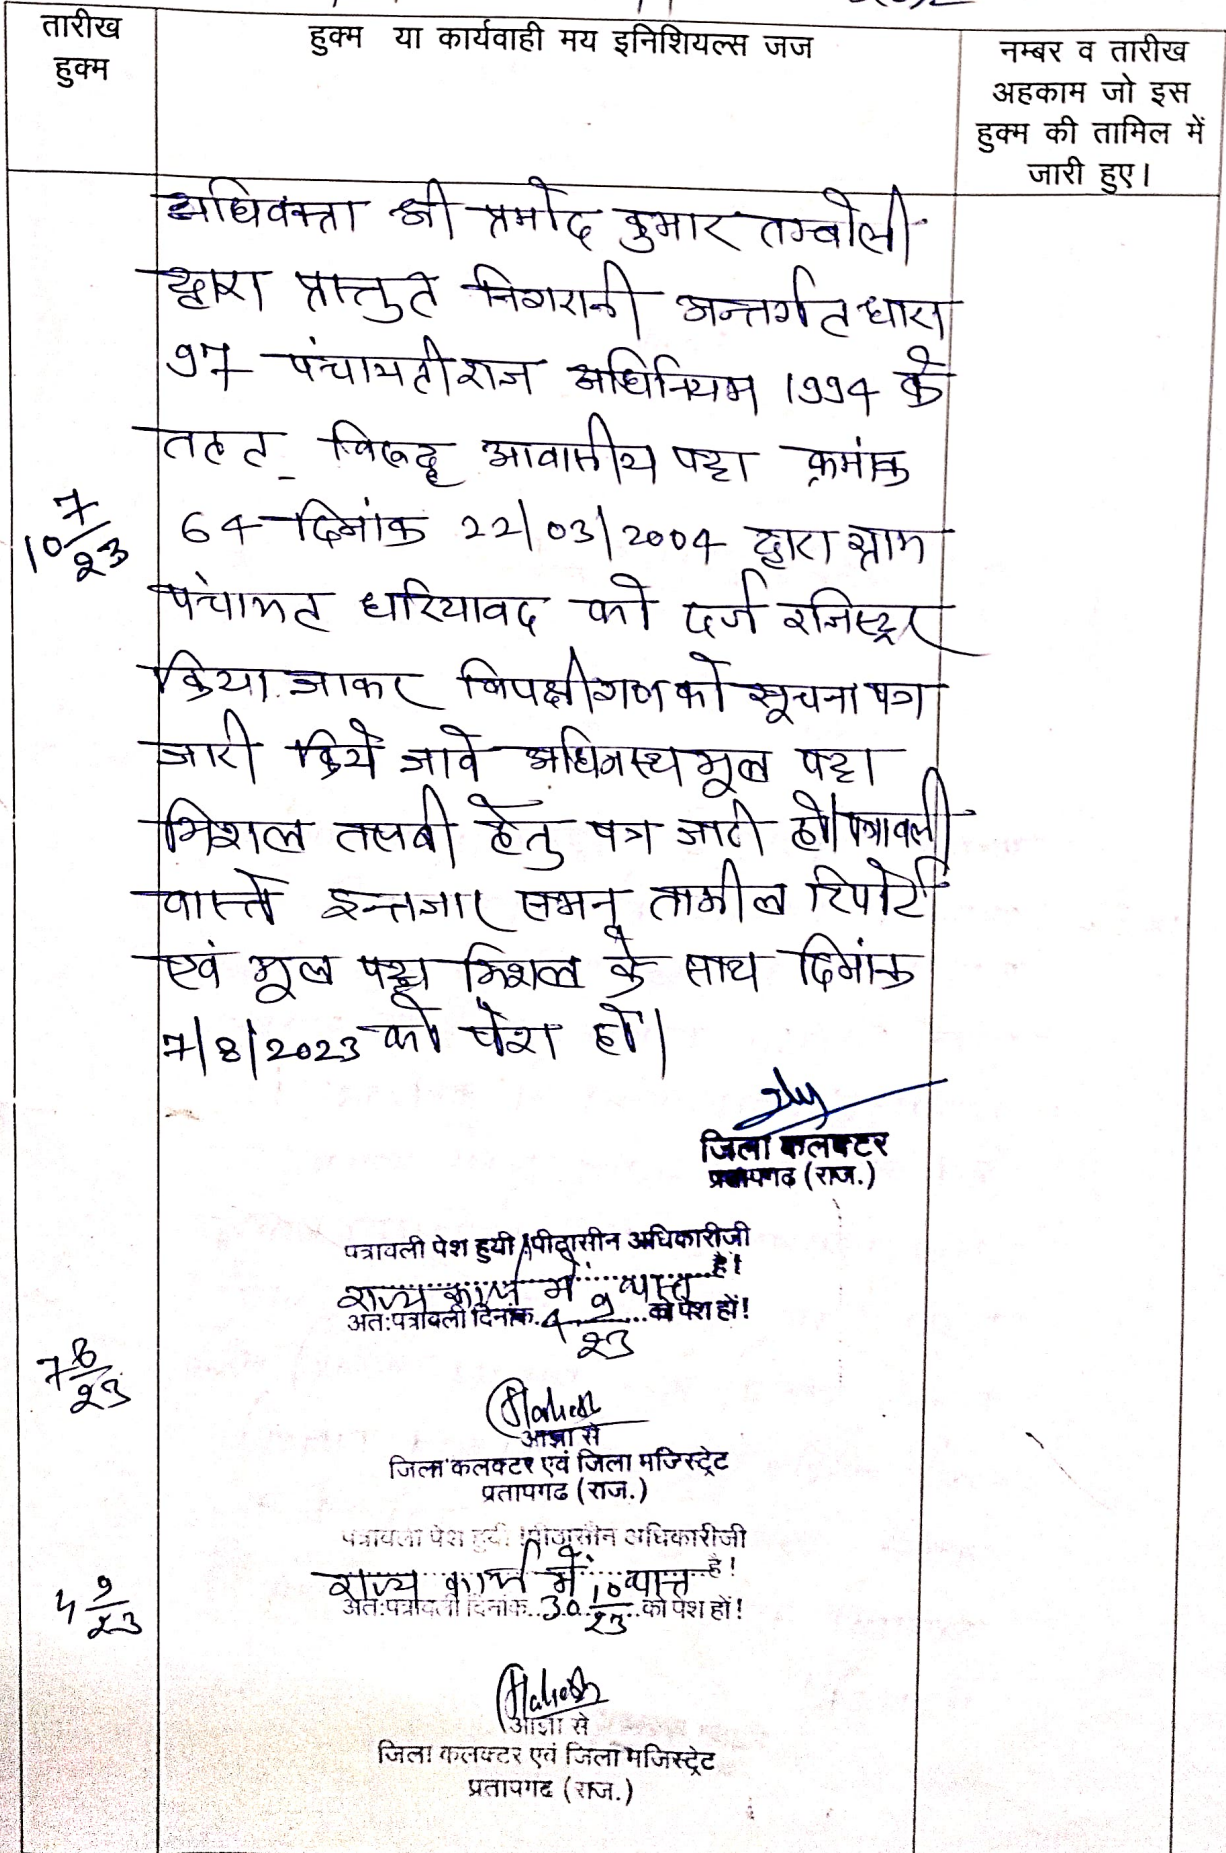 तारीख
हुक्म
हुक्म या कार्यवाही मय इनिशियल्स जज
नम्बर व तारीख
अहकाम जो इस
हुक्म की तामिल में
जारी हुए।
10 7/23
अधिवक्ता श्री प्रमोद कुमार तम्बोली
द्वारा प्रस्तुत निगरानी अन्तर्गत धारा
97 पंचायतीराज अधिनियम 1994 के
तहत विरूद्ध आवासीय पट्टा क्रमांक
64 दिनांक 22/03/2004 द्वारा ग्राम
पंचायत धरियावद को दर्ज रजिस्ट्रर
किया जाकर विपक्षीगण को सूचना पत्र
जारी किये जावे अधिनस्थ मूल पट्टा
मिशल तलबी हेतु पत्र जारी हो। पत्रावली
वास्ते इन्तजार समन् तामील रिपोर्ट
एवं मूल पट्टा मिशल के साथ दिनांक
7/8/2023 को पेश हों।
जिला कलक्टर
प्रतापगढ (राज.)
7 8/23
पत्रावली पेश हुयी। पीठासीन अधिकारीजी
राज्य कार्य में व्यस्त है!
अतः पत्रावली दिनांक. 4 9/23 को पेश हों!
आज्ञा से
जिला कलक्टर एवं जिला मजिस्ट्रेट
प्रतापगढ (राज.)
4 9/23
पत्रावली पेश हुयी। पीठासीन अधिकारीजी
राज्य कार्य में व्यस्त है!
अतः पत्रावली दिनांक. 30 10/23 को पेश हों!
आज्ञा से
जिला कलक्टर एवं जिला मजिस्ट्रेट
प्रतापगढ (राज.)